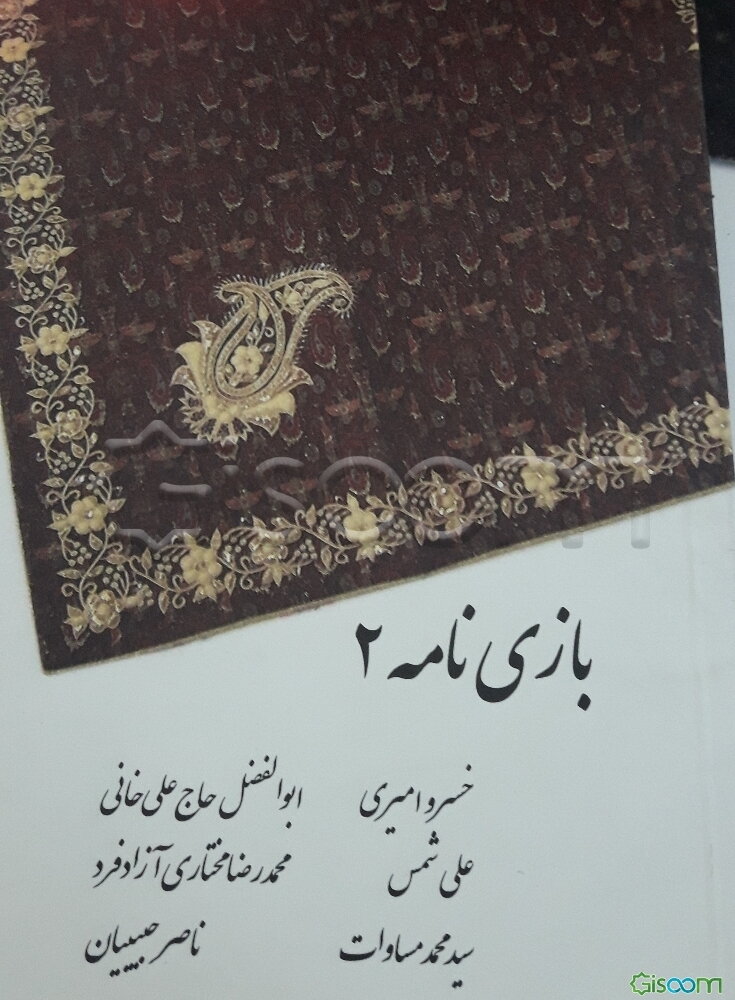 بازی نامه ۲
خسرو امیری
ابوالفضل حاج علی خانی
علی شمس
محمدرضا مختاری آزادفرد
سید محمد مساوات
ناصر حبیبیان
Gisoom
Gisoom